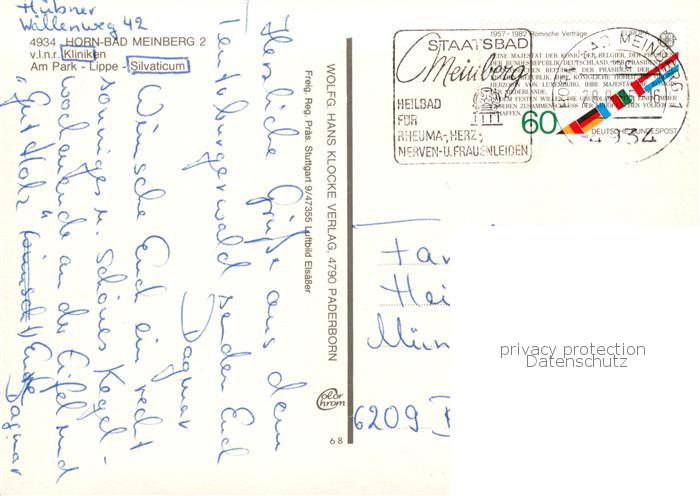 Hübner
Wällenweg 42
4934 HORN-BAD MEINBERG 2
v.l.n.r. Kliniken
Am Park - Lippe - Silvaticum
Herzliche Grüße aus dem
Teutoburgerwald senden Euch
Dagmar
Wünsche Euch ein recht
sonniges u. schönes Kegel-
wochenende an der Eifel und
"Gut Holz"
Dagmar
WOLFG. HANS KLOCKE VERLAG, 4790 PADERBORN
Freig. Reg. Präs. Stuttgart 9/47355 Luftbild Elsäßer
Color
chrom
68
STAATSBAD
Meinberg
HEILBAD
FÜR
RHEUMA-, HERZ-,
NERVEN-U. FRAUENLEIDEN
1957-1982 Römische Verträge
EUROPA
60
DEUTSCHE BUNDESPOST
BAD MEINBERG 1
4934
Fam
Hei
Mün
6209
privacy protection
Datenschutz